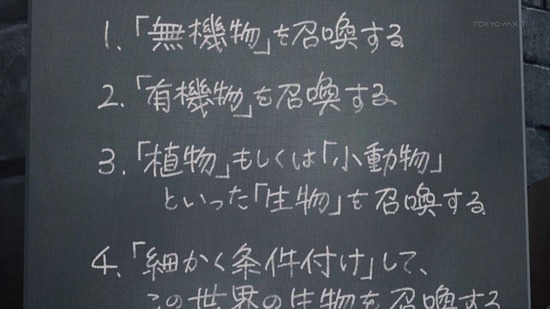 TOKYO MX 1
1.「無機物」を召喚する
2.「有機物」を召喚する
3.「植物」もしくは「小動物」
といった「生物」を召喚する
4.「細かく条件付け」して、
この世界の生物を召喚する